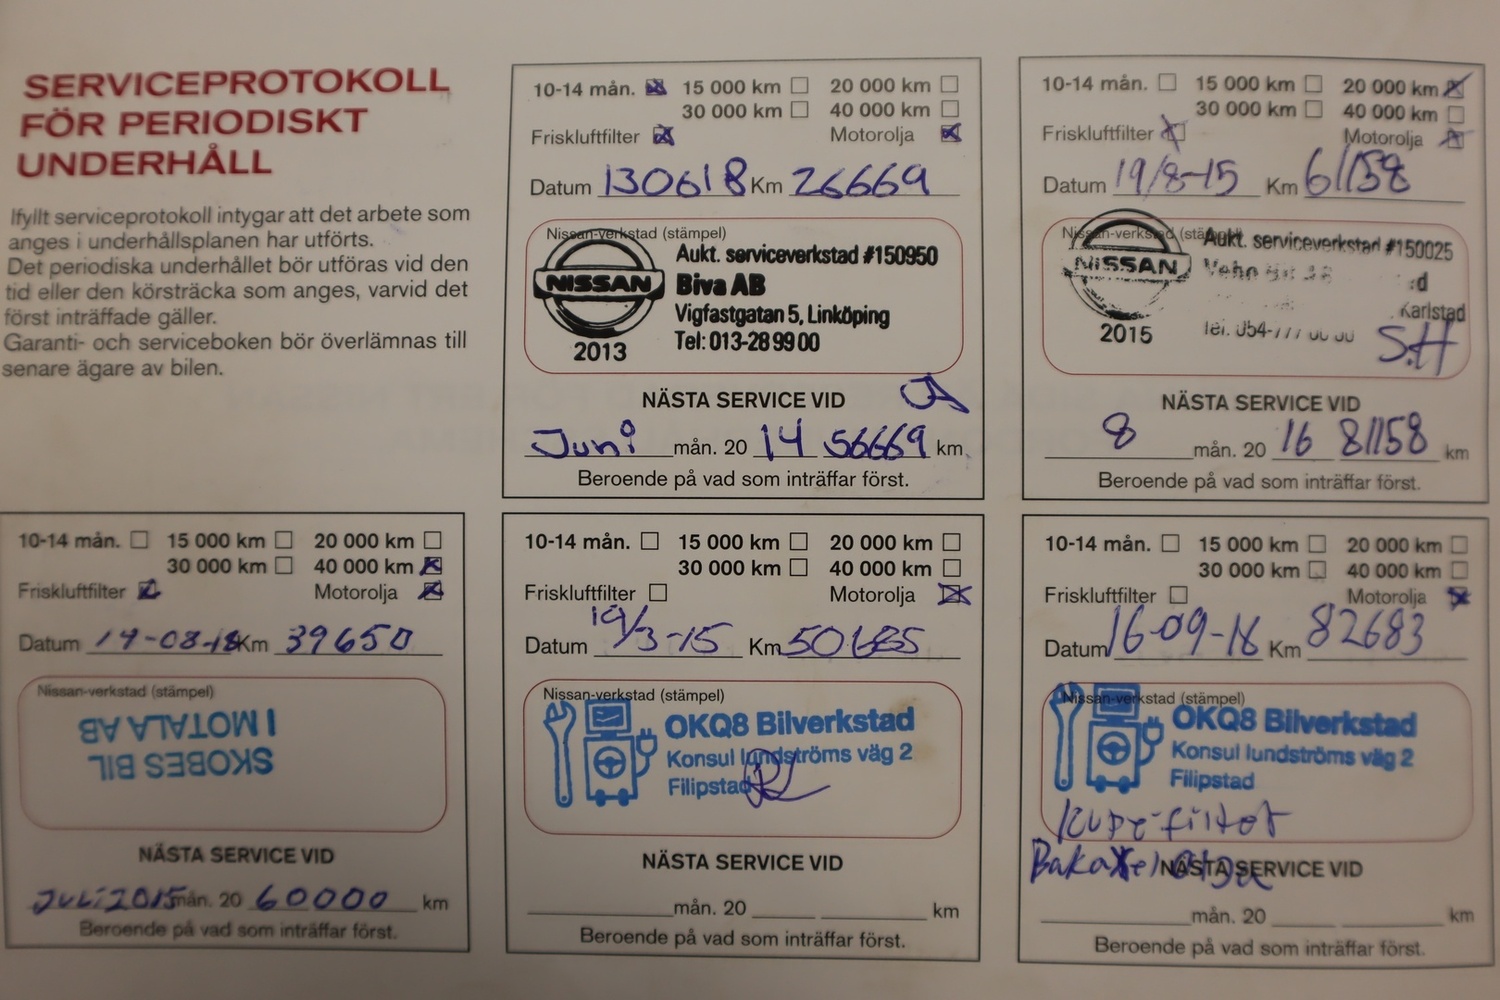 SERVICEPROTOKOLL
FÖR PERIODISKT
UNDERHÅLL
Ifyllt serviceprotokoll intygar att det arbete som
anges i underhållsplanen har utförts.
Det periodiska underhållet bör utföras vid den
tid eller den körsträcka som anges, varvid det
först inträffade gäller.
Garanti- och serviceboken bör överlämnas till
senare ägare av bilen.
10-14 mån. 15 000 km 20 000 km
30 000 km 40 000 km
Friskluftfilter Motorolja
Datum 130618 Km 26669
Nissan-verkstad (stämpel)
NISSAN
2013
Aukt. serviceverkstad #150950
Biva AB
Vigfastgatan 5, Linköping
Tel: 013-28 99 00
NÄSTA SERVICE VID
Juni mån. 20 14 56669 km
Beroende på vad som inträffar först.
10-14 mån. 15 000 km 20 000 km
30 000 km 40 000 km
Friskluftfilter Motorolja
Datum 19/8-15 Km 61158
Nissan-verkstad (stämpel)
NISSAN
2015
Aukt. serviceverkstad #150025
Karlstad
Tel. 054-777
S.H
NÄSTA SERVICE VID
8 mån. 20 16 81158 km
Beroende på vad som inträffar först.
10-14 mån. 15 000 km 20 000 km
30 000 km 40 000 km
Friskluftfilter Motorolja
Datum Km 39650
Nissan-verkstad (stämpel)
SKOBES BIL
I MOTALA AB
NÄSTA SERVICE VID
Juli 2015 mån. 20 60000 km
Beroende på vad som inträffar först.
10-14 mån. 15 000 km 20 000 km
30 000 km 40 000 km
Friskluftfilter Motorolja
Datum 19/3-15 Km
Nissan-verkstad (stämpel)
OKQ8 Bilverkstad
Konsul lundströms väg 2
Filipstad
NÄSTA SERVICE VID
mån. 20 km
Beroende på vad som inträffar först.
10-14 mån. 15 000 km 20 000 km
30 000 km 40 000 km
Friskluftfilter Motorolja
Datum 16-09-16 Km 82683
Nissan-verkstad (stämpel)
OKQ8 Bilverkstad
Konsul lundströms väg 2
Filipstad
Kupe-filter
Bakaxel Olja
NÄSTA SERVICE VID
mån. 20 km
Beroende på vad som inträffar först.